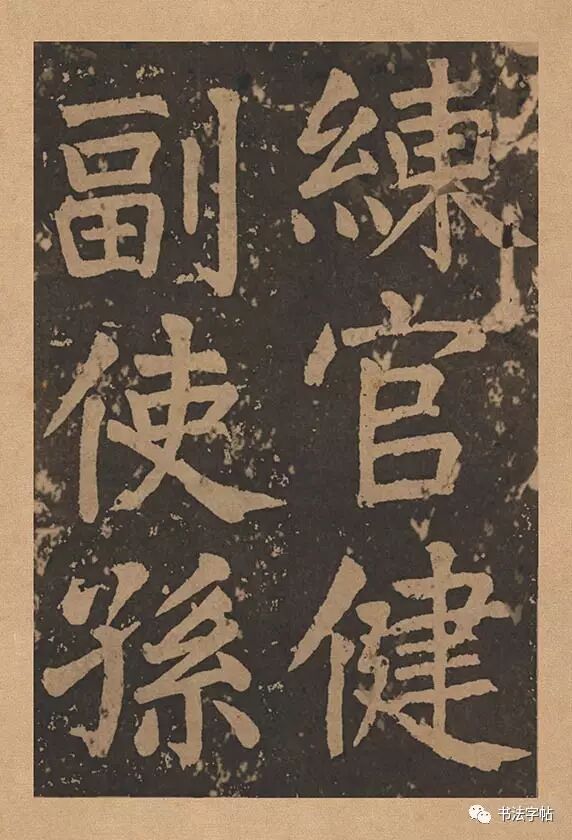 練官健
副使孫
书法字帖